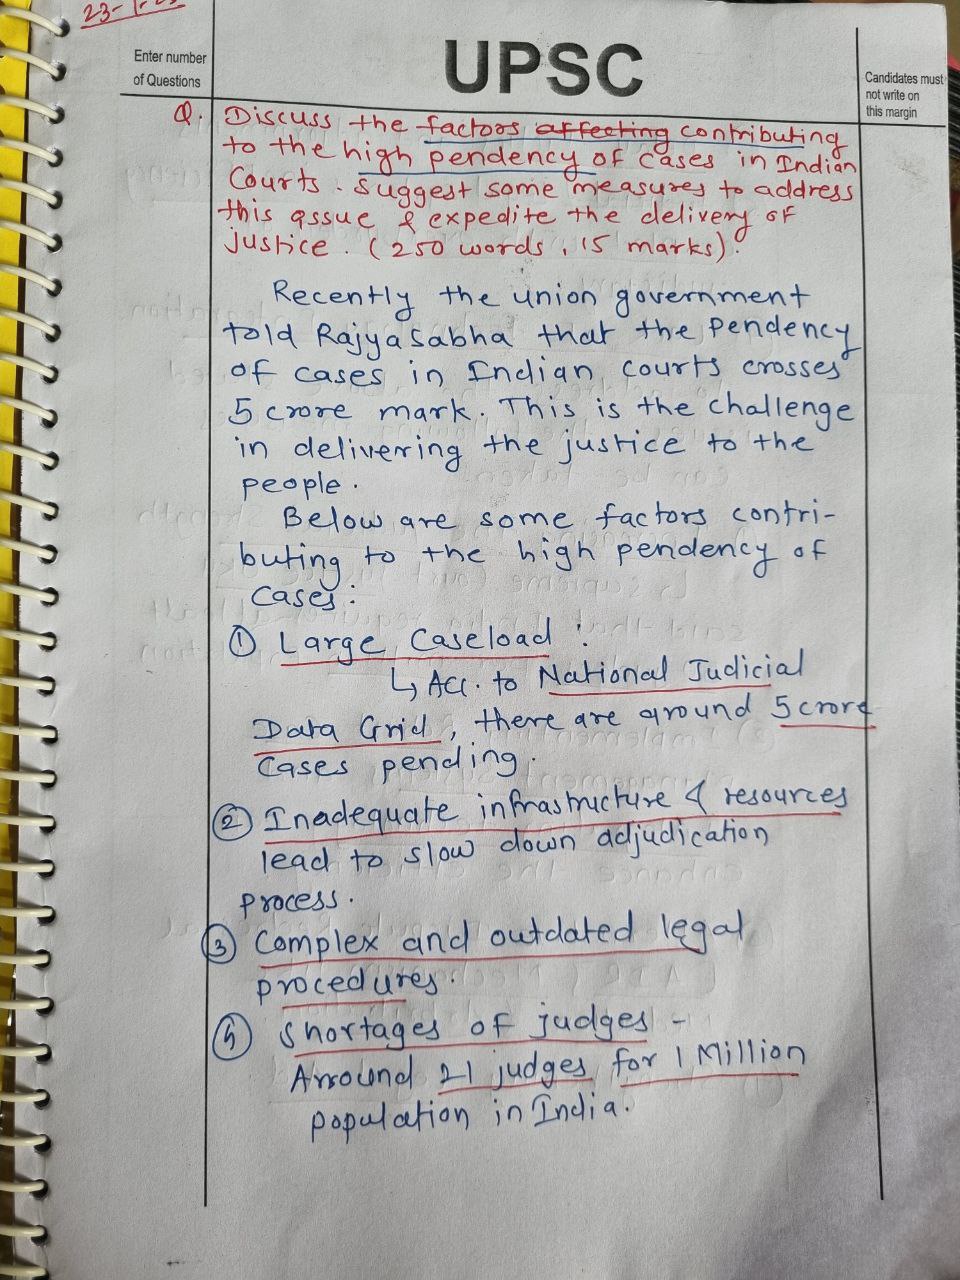 Enter number
of Questions
UPSC
Candidates must
not write on
this margin
Q. Discuss the factors affecting contributing
to the high pendency of cases in Indian
Courts. Suggest some measures to address
this issue & expedite the delivery of
justice. (250 words, 15 marks).
Recently the union government
told Rajyasabha that the pendency
of cases in Indian courts crosses
5 crore mark. This is the challenge
in delivering the justice to the
people.
Below are some factors contri-
buting to the high pendency of
cases:
① Large Caseload :
↳ Acc. to National Judicial
Data Grid, there are around 5 crore
cases pending.
② Inadequate infrastructure & resources
lead to slow down adjudication
process.
③ Complex and outdated legal
procedures.
④ Shortages of judges -
Arround 21 judges for 1 Million
population in India.